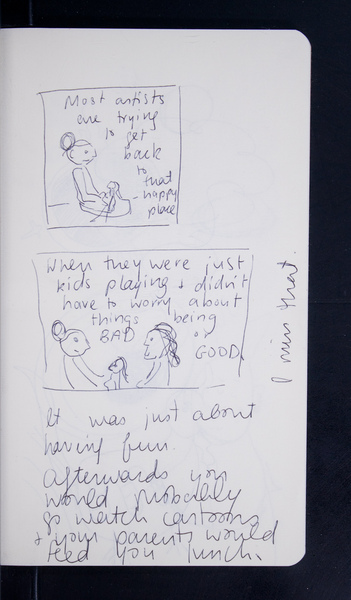 Most artists
are trying
to get
back
to
that
happy
place
When they were just
kids playing + didn't
have to worry about
things being
BAD or
GOOD.
I miss that.
It was just about
having fun.
Afterwards you
would probably
go watch cartoons
+ your parents would
feed you lunch.